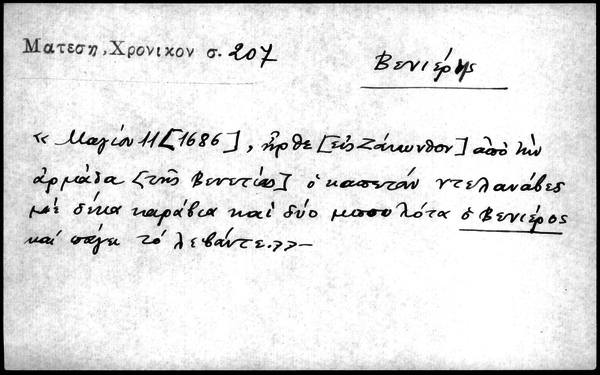 Ματεση, Χρονικον σ. 207
Βενιέρης
« Μαγίου 11 [1686], ἦρθε [εἰς Ζάκυνθον] ἀπὸ τὴν
ἀρμάδα [τῆς Βενετίας] ὁ καπετάν ντελανάβες
μὲ δέκα καράβια καὶ δύο μπουλότα ὁ Βενιέρος
καί πάγει τό λεβάντε.»—